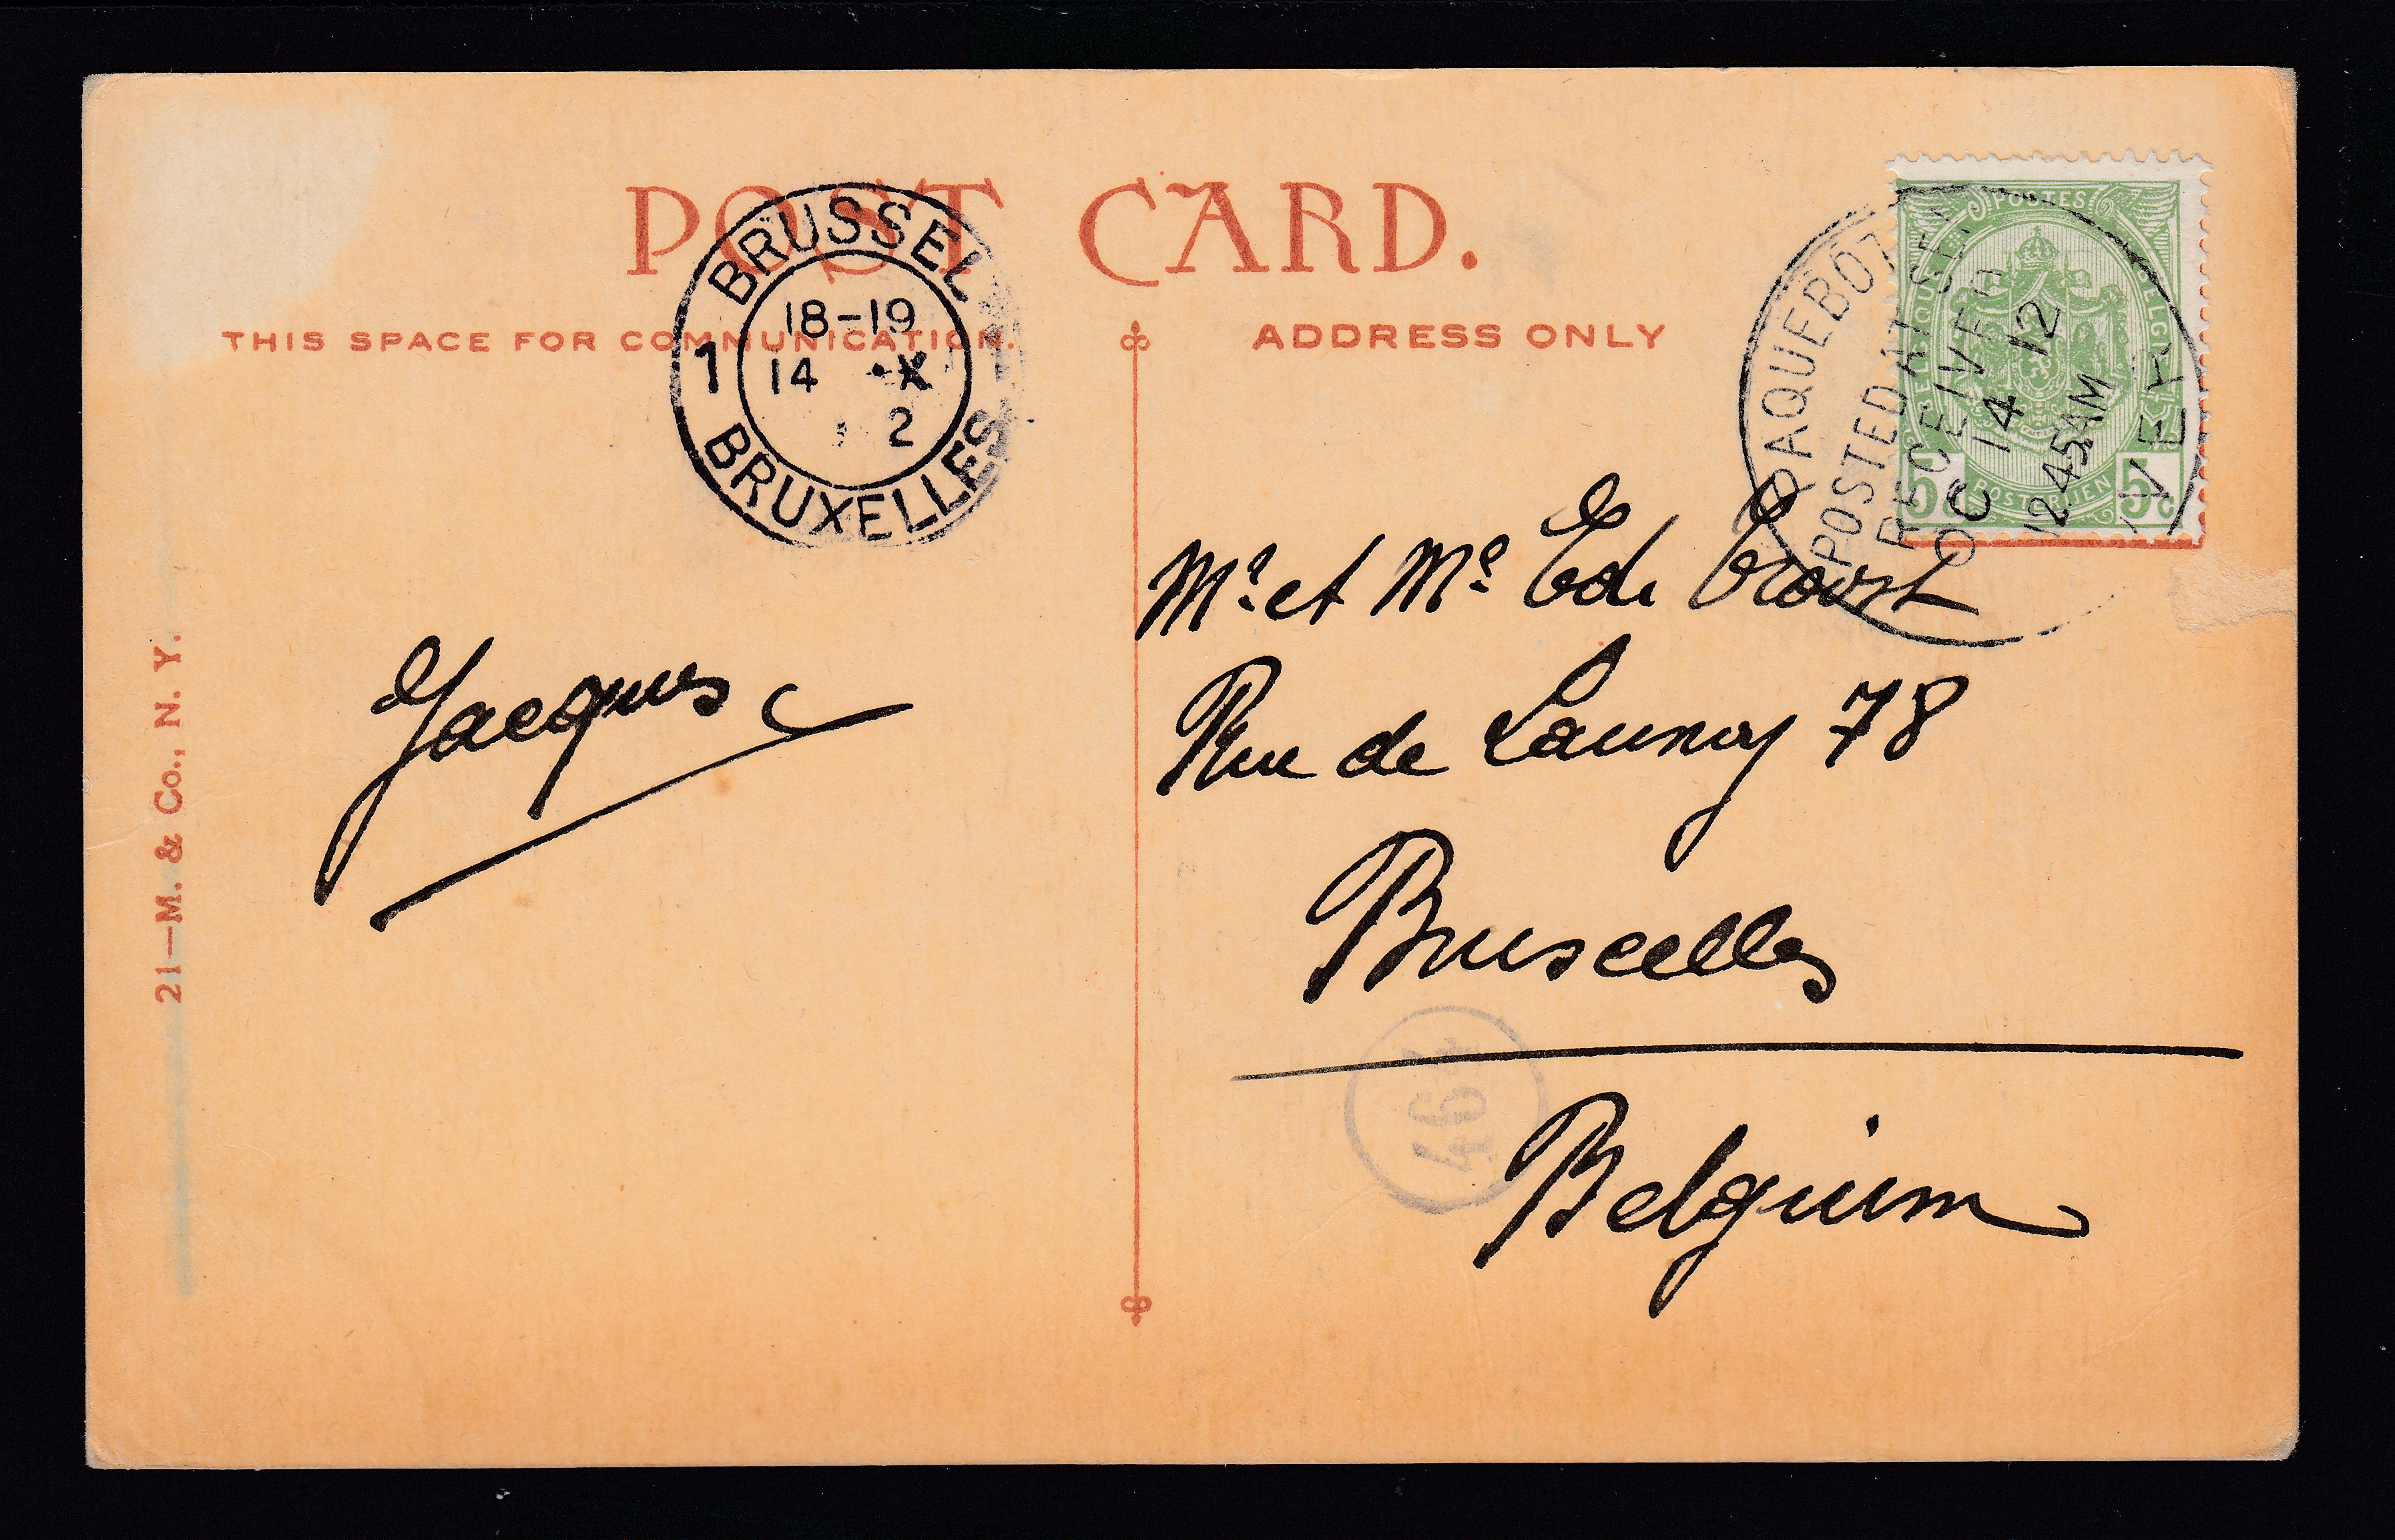 POST CARD.
THIS SPACE FOR COMMUNICATION.
ADDRESS ONLY
BRUSSEL
18-19
14 X
2
1
BRUXELLES
PAQUEBOT
POSTED AT SEA
RECEIVED
OC 14 12
12 45AM
VER
POSTES
BELGIQUE
BELGIË
POSTERIJEN
5c 5c
Mr. et Me. Ed. Troost
Rue de Launoy 78
Bruxelles
Belgium
Jacques
464
21—M. & Co., N. Y.